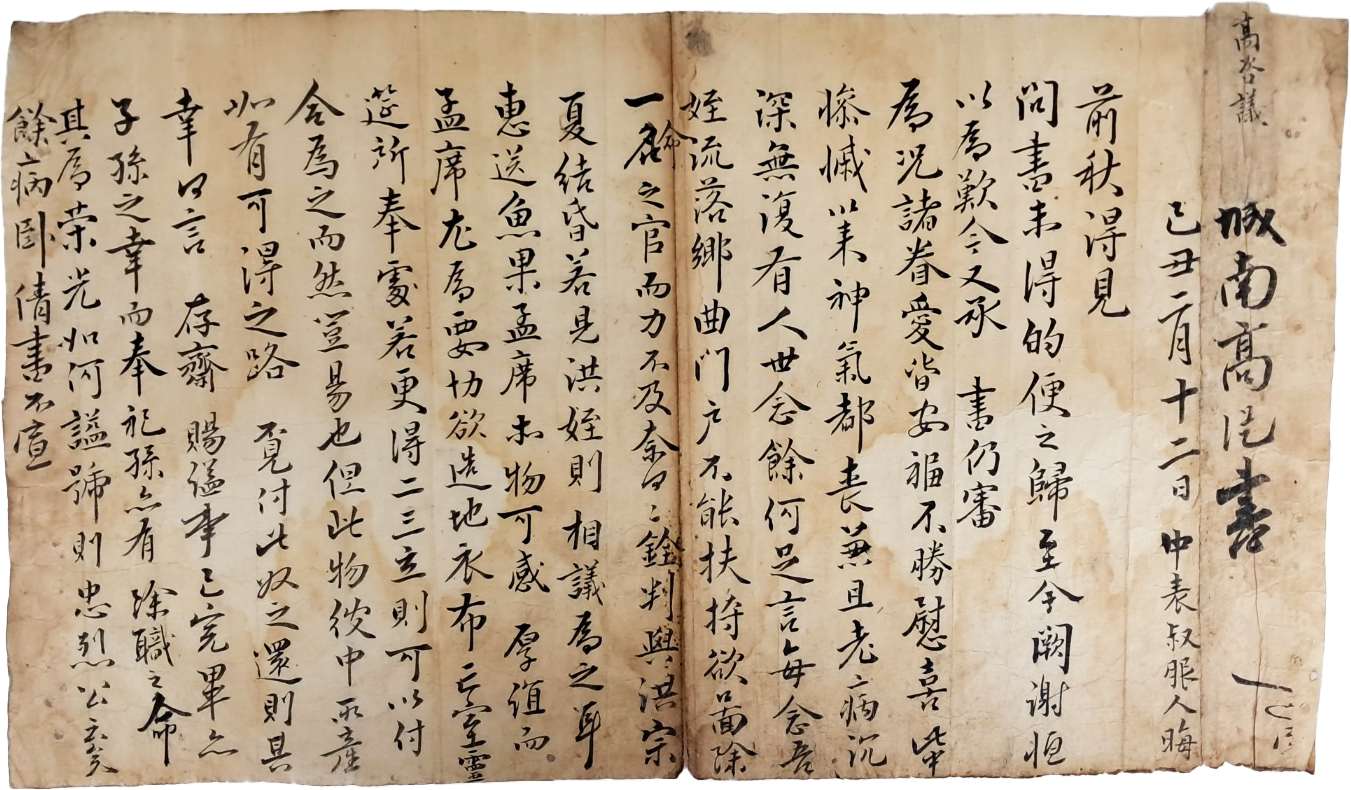 高參議
城南高 書
己丑二月十二日 中表叔服人晦
前秋得見
問書未得的便之歸至今闕謝恒
以爲歎今又承 書仍審
爲況諸眷愛皆安福不勝慰喜此中
慘慽以來神氣都喪兼且老病沉
深無復有人世念餘何足言每念吾
姪流落鄕曲門戶不能扶持欲啚除
一命之官而力不及奈何奈何銓判與洪宗
夏結昏若見洪姪則 相議爲之耳
惠送魚果孟席等物可感 厚誼而
孟席尤爲要切欲造地衣布亡室靈
筵所奉處若更得二三立則可以付
合爲之而然豈易也但此物彼中所産
如有可得之路 覓付此奴之還則其
幸何言 存齋 賜謚事已完畢亦
子孫之幸而奉祀孫亦有 除職之命
其爲榮光如何謚號則忠烈公云矣
餘病卧倩書不宣